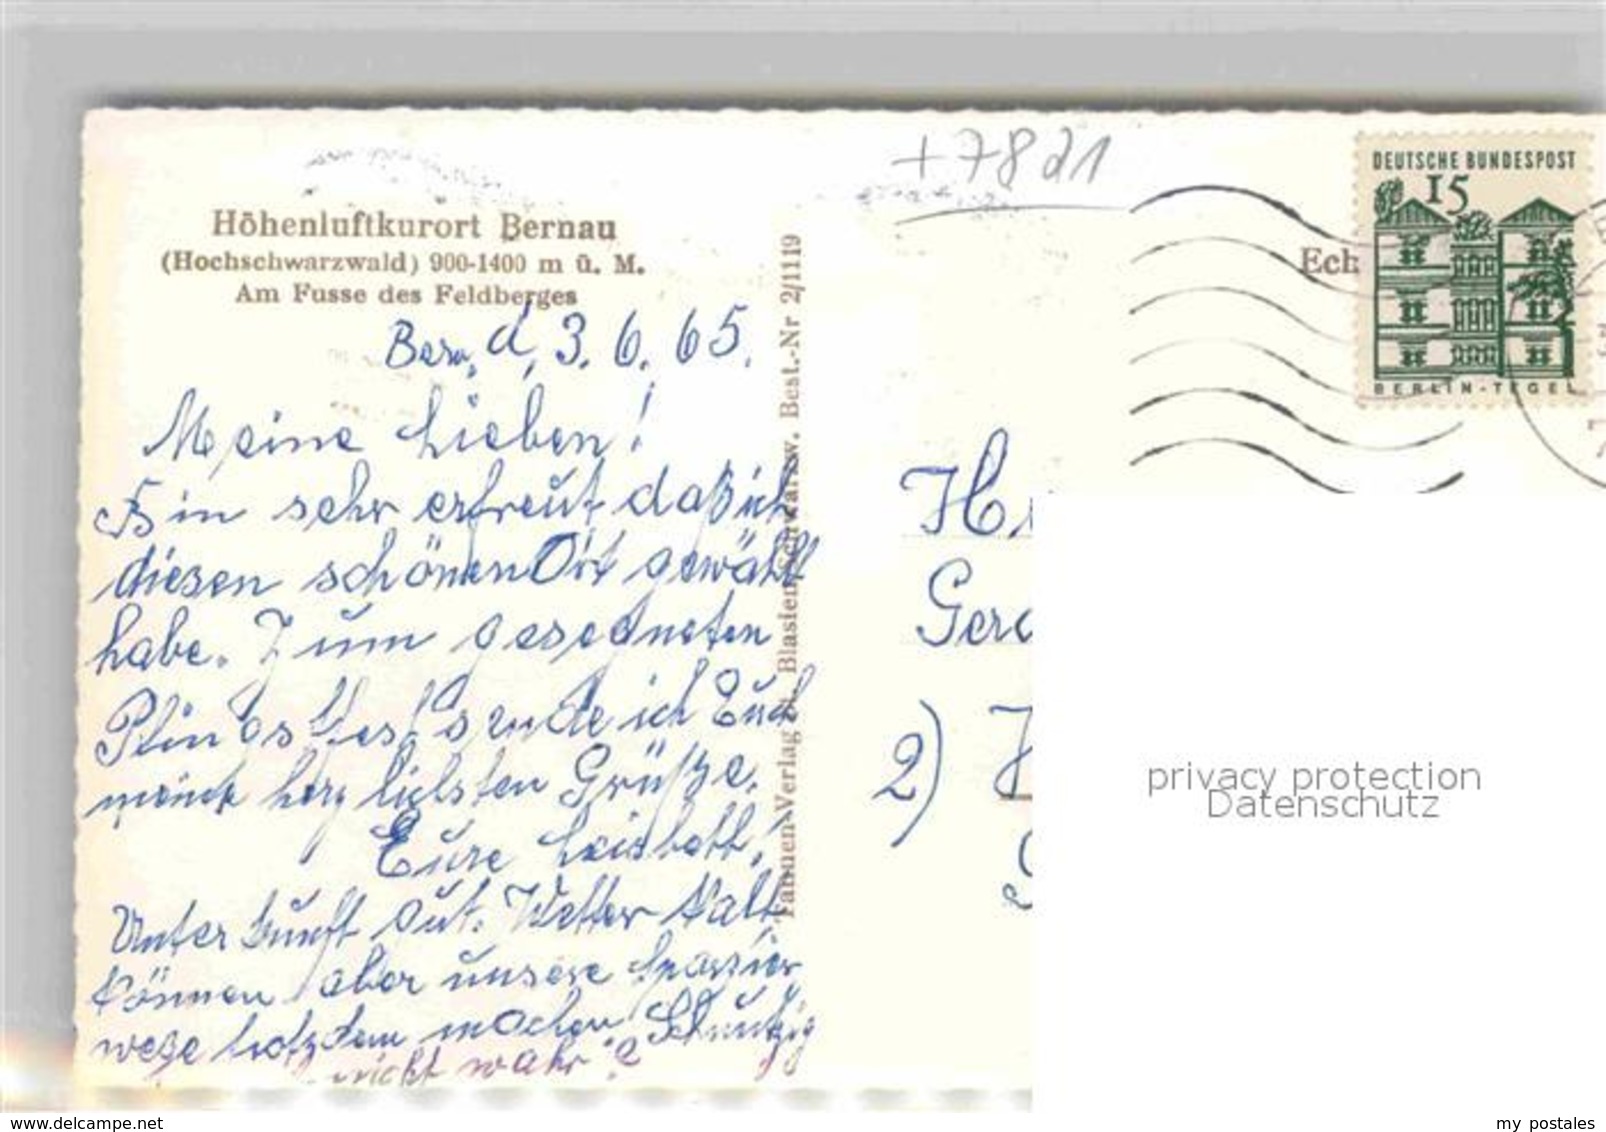 +7821
Höhenluftkurort Bernau
(Hochschwarzwald) 900-1400 m ü. M.
Am Fusse des Feldberges
Bern, d, 3. 6. 65.
Meine Lieben!
Bin sehr erfreut daß ich
diesen schönen Ort gewählt
habe. Zum gesegneten
Pfingstfest sende ich Euch
meine herzlichsten Grüße.
Eure Lisbeth.
Unterkunft gut. Wetter kalt
können aber unsere Spazier
wege trotzdem machen
nicht wahr?
Tannen-Verlag St. Blasien/Schwarzw. Best.-Nr 2/1119
Ech
DEUTSCHE BUNDESPOST
15
BERLIN-TEGEL
H
Ger
2)
privacy protection
Datenschutz
www.delcampe.net
my postales